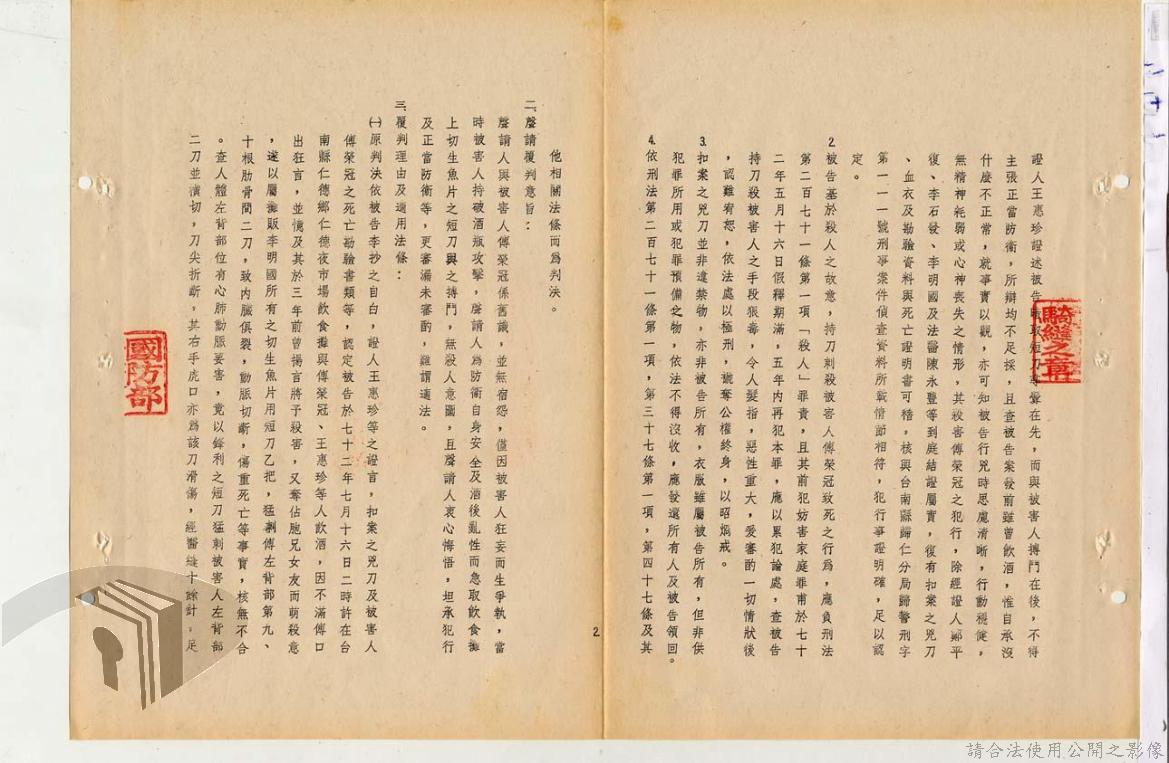 證人王惠珍證述被告
取短刀
聲在先，而與被害人搏鬥在後，不得
主張正當防衛，所辯均不足採，且查被告案發前雖曾飲酒，惟自承沒
什麼不正常，就事實以觀，亦可知被告行兇時思慮清晰，行動穩健，
無精神耗弱或心神喪失之情形，其殺害傅榮冠之犯行，除經證人鄭平
復、李石發、李明國及法醫陳永豐等到庭結證屬實，復有扣案之兇刀
、血衣及勘驗資料與死亡證明書可稽，核與台南縣歸仁分局歸警刑字
第一一一號刑事案件偵查資料所載情節相符，犯行事證明確，足以認
定。
2.被告基於殺人之故意，持刀刺殺被害人傅榮冠致死之行為，應負刑法
第二百七十一條第一項「殺人」罪責，且其前犯妨害家庭罪甫於七十
二年五月十六日假釋期滿，五年內再犯本罪，應以累犯論處，查被告
持刀殺被害人之手段狠毒，令人髮指，惡性重大，爰審酌一切情狀後
，認難宥恕，依法處以極刑，褫奪公權終身，以昭烱戒。
3.扣案之兇刀並非違禁物，亦非被告所有，衣服雖屬被告所有，但非供
犯罪所用或犯罪預備之物，依法不得沒收，應發還所有人及被告領回。
4.依刑法第二百七十一條第一項，第三十七條第一項，第四十七條及其
2
他相關法條而為判決。
二、聲請覆判意旨：
聲請人與被害人傅榮冠係舊識，並無宿怨，僅因被害人狂妄而生爭執，當
時被害人持破酒瓶攻擊，聲請人為防衛自身安全及酒後亂性而急取飲食攤
上切生魚片之短刀與之搏鬥，無殺人意圖，且聲請人衷心悔悟，坦承犯行
及正當防衛等，更審漏未審酌，難謂適法。
三、覆判理由及適用法條：
㈠原判決依被告李抄之自白，證人王惠珍等之證言，扣案之兇刀及被害人
傅榮冠之死亡勘驗書類等，認定被告於七十二年七月十六日二時許在台
南縣仁德鄉仁德夜市場飲食攤與傅榮冠、王惠珍等人飲酒，因不滿傅口
出狂言，並憶及其於三年前曾揚言將予殺害，又奪佔胞兄女友而萌殺意
，遂以屬攤販李明國所有之切生魚片用短刀乙把，猛刺傅左背部第九、
十根肋骨間二刀，致內臟俱裂，動脈切斷，傷重死亡等事實，核無不合
。查人體左背部位有心肺動脈要害，竟以鋒利之短刀猛刺被害人左背部
二刀並橫切，刀尖折斷，其右手虎口亦為該刀滑傷，經醫縫十餘針，足
騎縫之章
國防部
請合法使用公開之影像